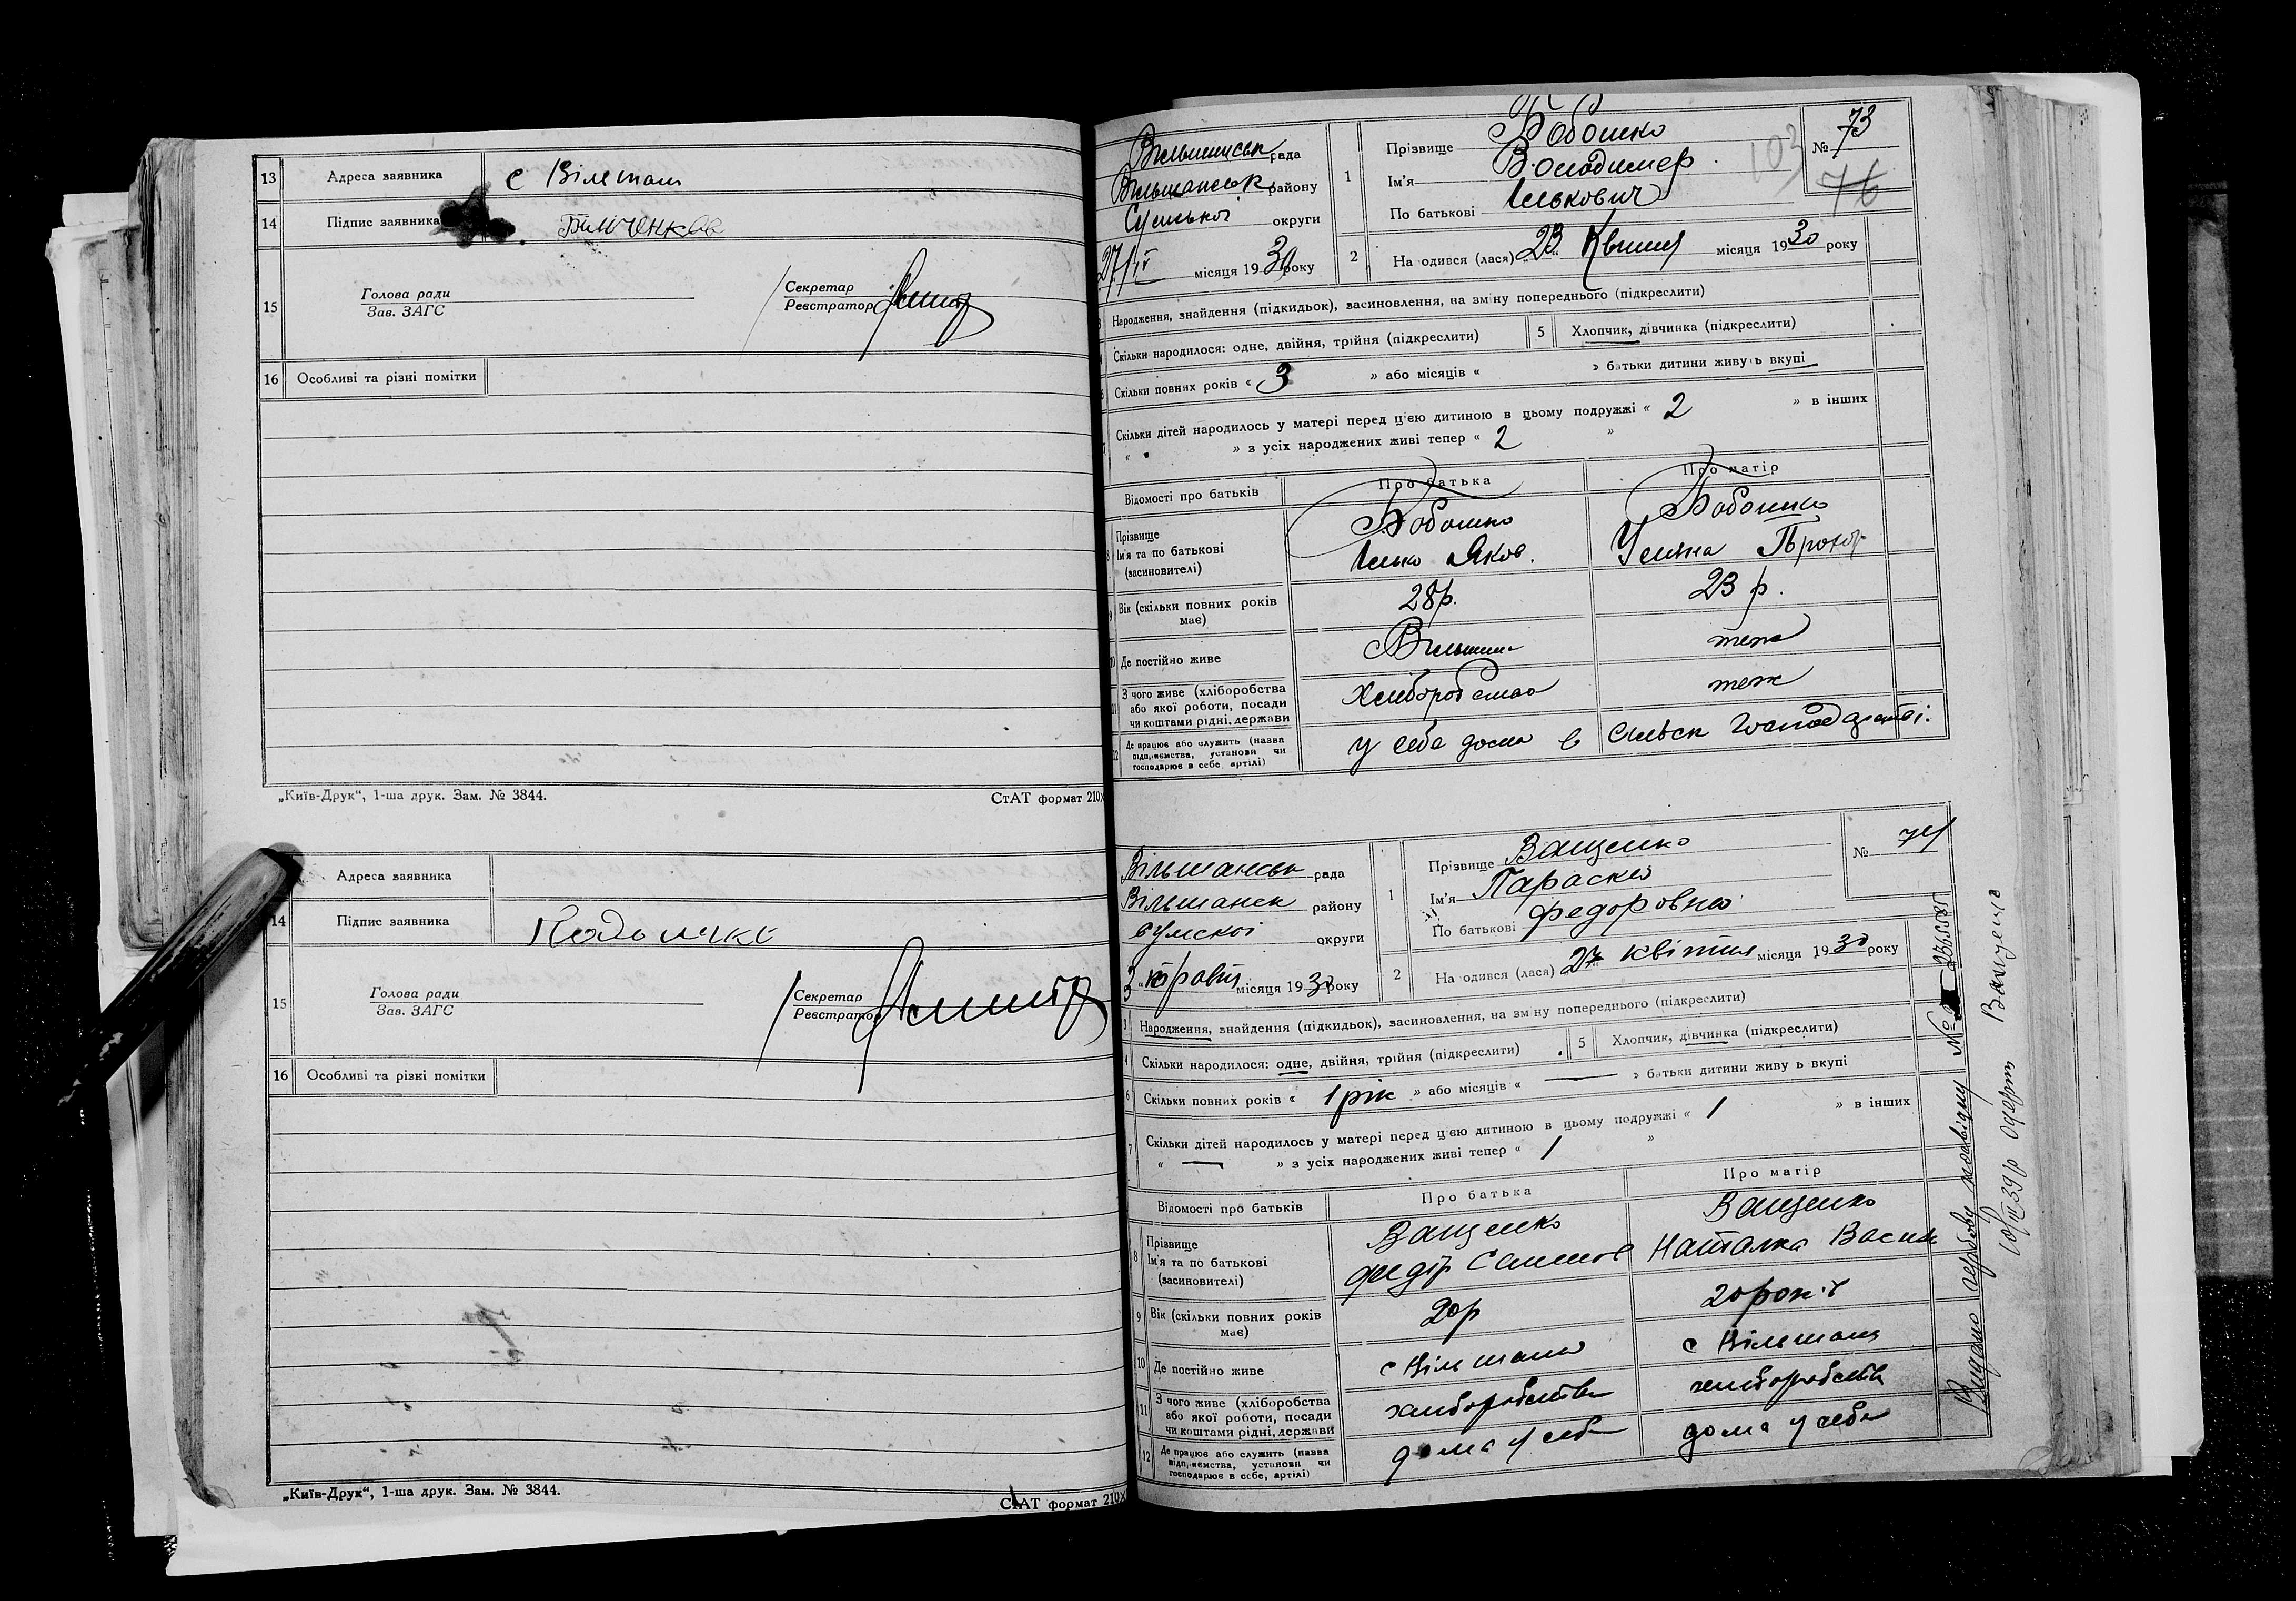 13 Адреса заявника с Вільшани
14 Підпис заявника
15 Голова ради
Зав. ЗАГС
Секретар
Реєстратор
16 Особливі та різні помітки
„Київ-Друк“, 1-ша друк. Зам. № 3844.
СтАТ формат 210х
Адреса заявника
14 Підпис заявника
15 Голова ради
Зав. ЗАГС
Секретар
Реєстратор
16 Особливі та різні помітки
„Київ-Друк“, 1-ша друк. Зам. № 3844.
СтАТ формат 210х
Вільшанськ рада
Вільшанськ району
Сумської округи
27/IV місяця 1930 року
1 Прізвище Бобошко
Ім'я Володимер
По батькові Ількович
103
№ 73
76
2 На одився (лася) „23“ Квітня місяця 1930 року
3 Народження, знайдення (підкидьок), засиновлення, на зміну попереднього (підкреслити)
4 Скільки народилося: одне, двійня, трійня (підкреслити)
5 Хлопчик, дівчинка (підкреслити)
6 Скільки повних років « 3 » або місяців « » батьки дитини живуть вкупі
7 Скільки дітей народилось у матері перед цією дитиною в цьому подружжі « 2 » в інших
« » з усіх народжених живі тепер « 2 »
Відомості про батьків Про батька Про матір
8 Прізвище Бобошко Бобошко
Ім'я та по батькові Ілько Яков. Уляна Прохор
(засиновителі)
9 Вік (скільки повних років має) 28р. 23 р.
10 Де постійно живе Вільшани теж
11 З чого живе (хліборобства або якої роботи, посади чи коштами рідні, держави Хліборобство теж
12 Де працює або служить (назва підприємства, установи чи господарює в себе, артілі) у себе дома в сільск господарстві.
Вільшанськ рада
Вільшанск району
сумскої округи
3 „травня місяця 1930 року
1 Прізвище Ващенко
Ім'я Параска
По батькові Федоровна
№ 74
2 На одився (лася) 27 квітня місяця 1930 року
3 Народження, знайдення (підкидьок), засиновлення, на зм ну попереднього (підкреслити)
4 Скільки народилося: одне, двійня, трійня (підкреслити)
5 Хлопчик, дівчинка (підкреслити)
6 Скільки повних років « 1 рік » або місяців « — » батьки дитини живу ь вкупі
7 Скільки дітей народилось у матері перед цією дитиною в цьому подружжі « 1 » в інших
« — » з усіх народжених живі тепер « 1 »
Відомості про батьків Про батька Про матір
8 Прізвище Ващенко Ващенко
Ім'я та по батькові Федір Наталка Васил
(засиновителі)
9 Вік (скільки повних років має) 20р 20 років
10 Де постійно живе с Вільшани с Вільшани
11 З чого живе (хліборобства або якої роботи, посади чи коштами рідні, держави хліборобства хліборобств
12 Де працює або служить (назва підприємства, установи чи господарює в себе, артілі) дома у себе дома у себе
Видано гербову №
39р Ващенко